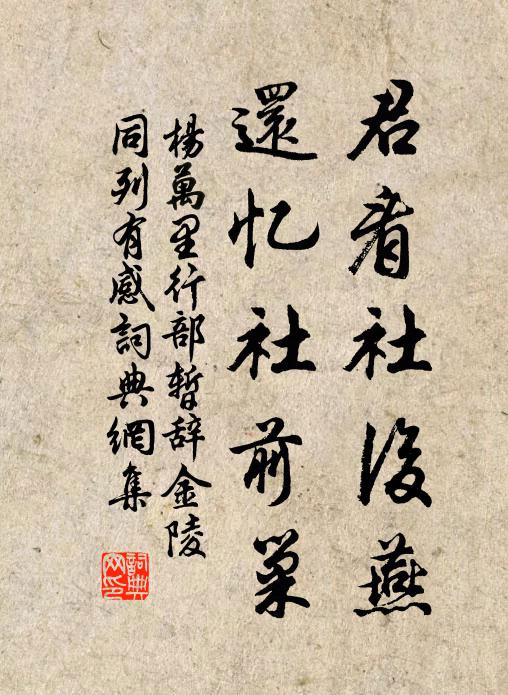 君看社後燕
還忆社前巢
楊萬里行部暫辞金陵
同列有感詞典網集
詞典網印